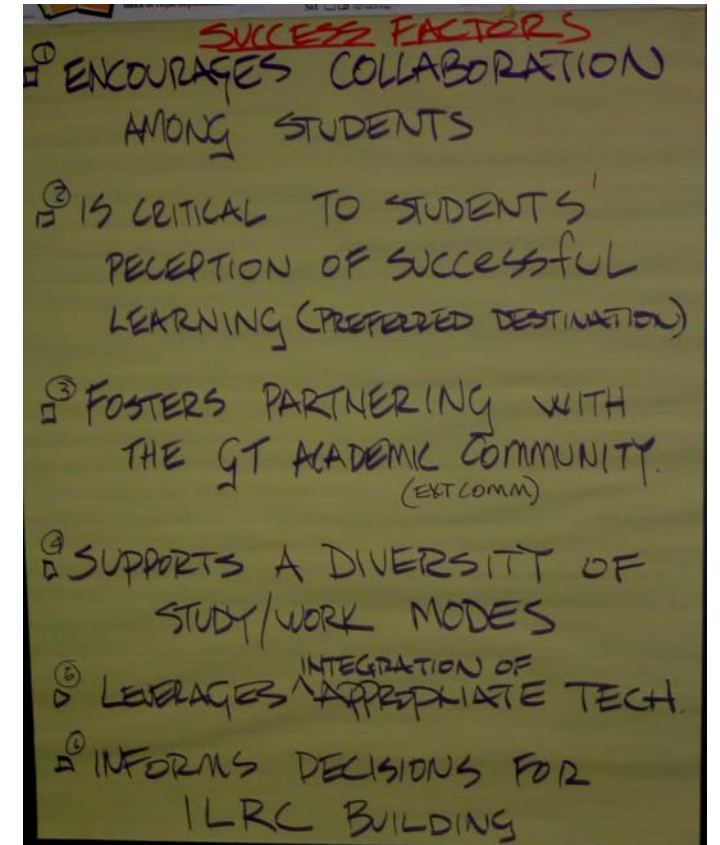 SUCCESS FACTORS
① ENCOURAGES COLLABORATION
AMONG STUDENTS
② IS CRITICAL TO STUDENTS'
PECEPTION OF SUCCESSFUL
LEARNING (PREFERRED DESTINATION)
③ FOSTERS PARTNERING WITH
THE GT ACADEMIC COMMUNITY.
(EXT COMM)
④ SUPPORTS A DIVERSITY OF
STUDY/WORK MODES
INTEGRATION OF
⑤ LEVERAGES ^ APPROPRIATE TECH.
⑥ INFORMS DECISIONS FOR
ILRC BUILDING